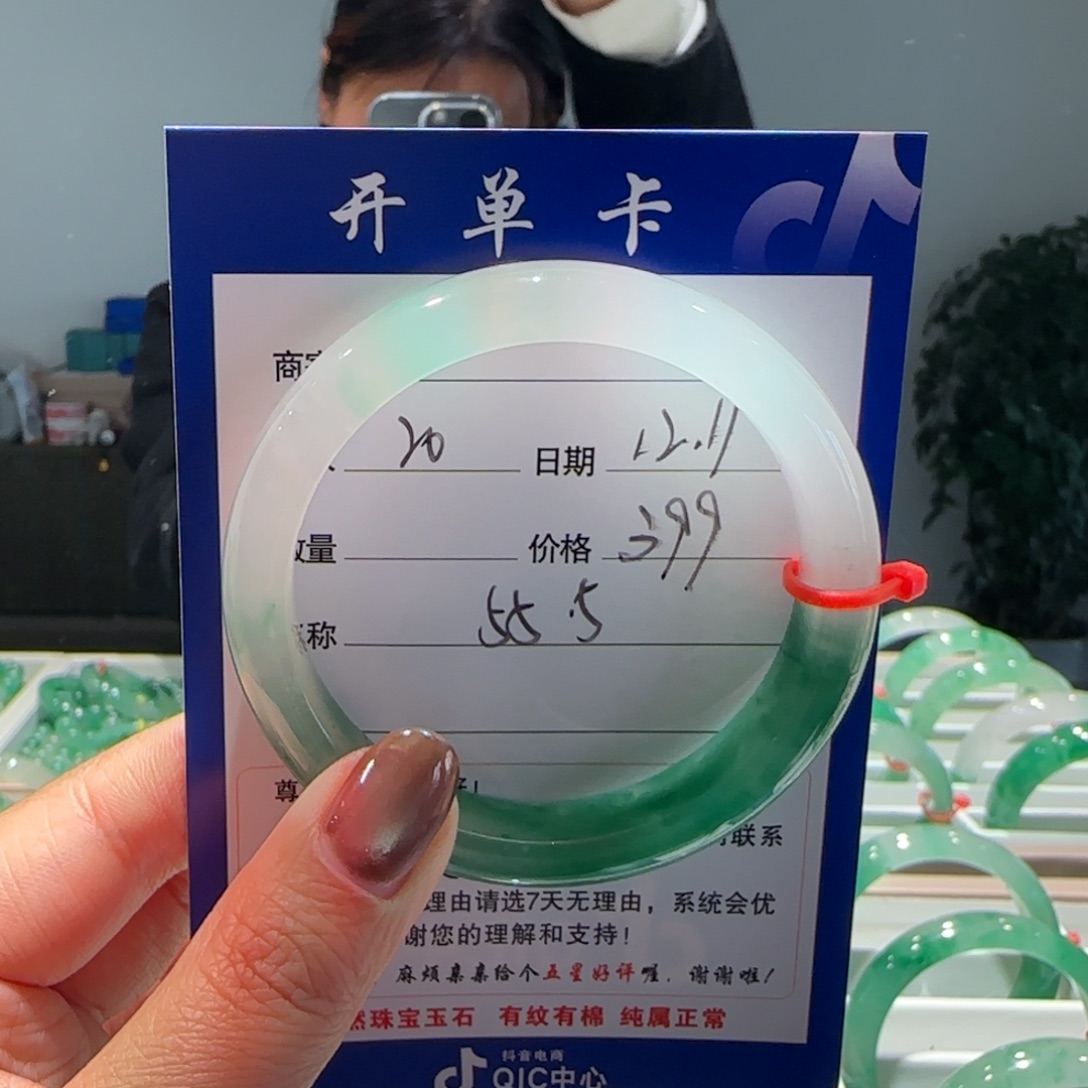 开单卡
商
20 日期 12.11
量 价格 399
称 55.5
尊
联系
理由请选7天无理由，系统会优
谢您的理解和支持！
麻烦亲亲给个五星好评喔，谢谢啦！
珠宝玉石 有纹有棉 纯属正常
抖音电商
QIC中心